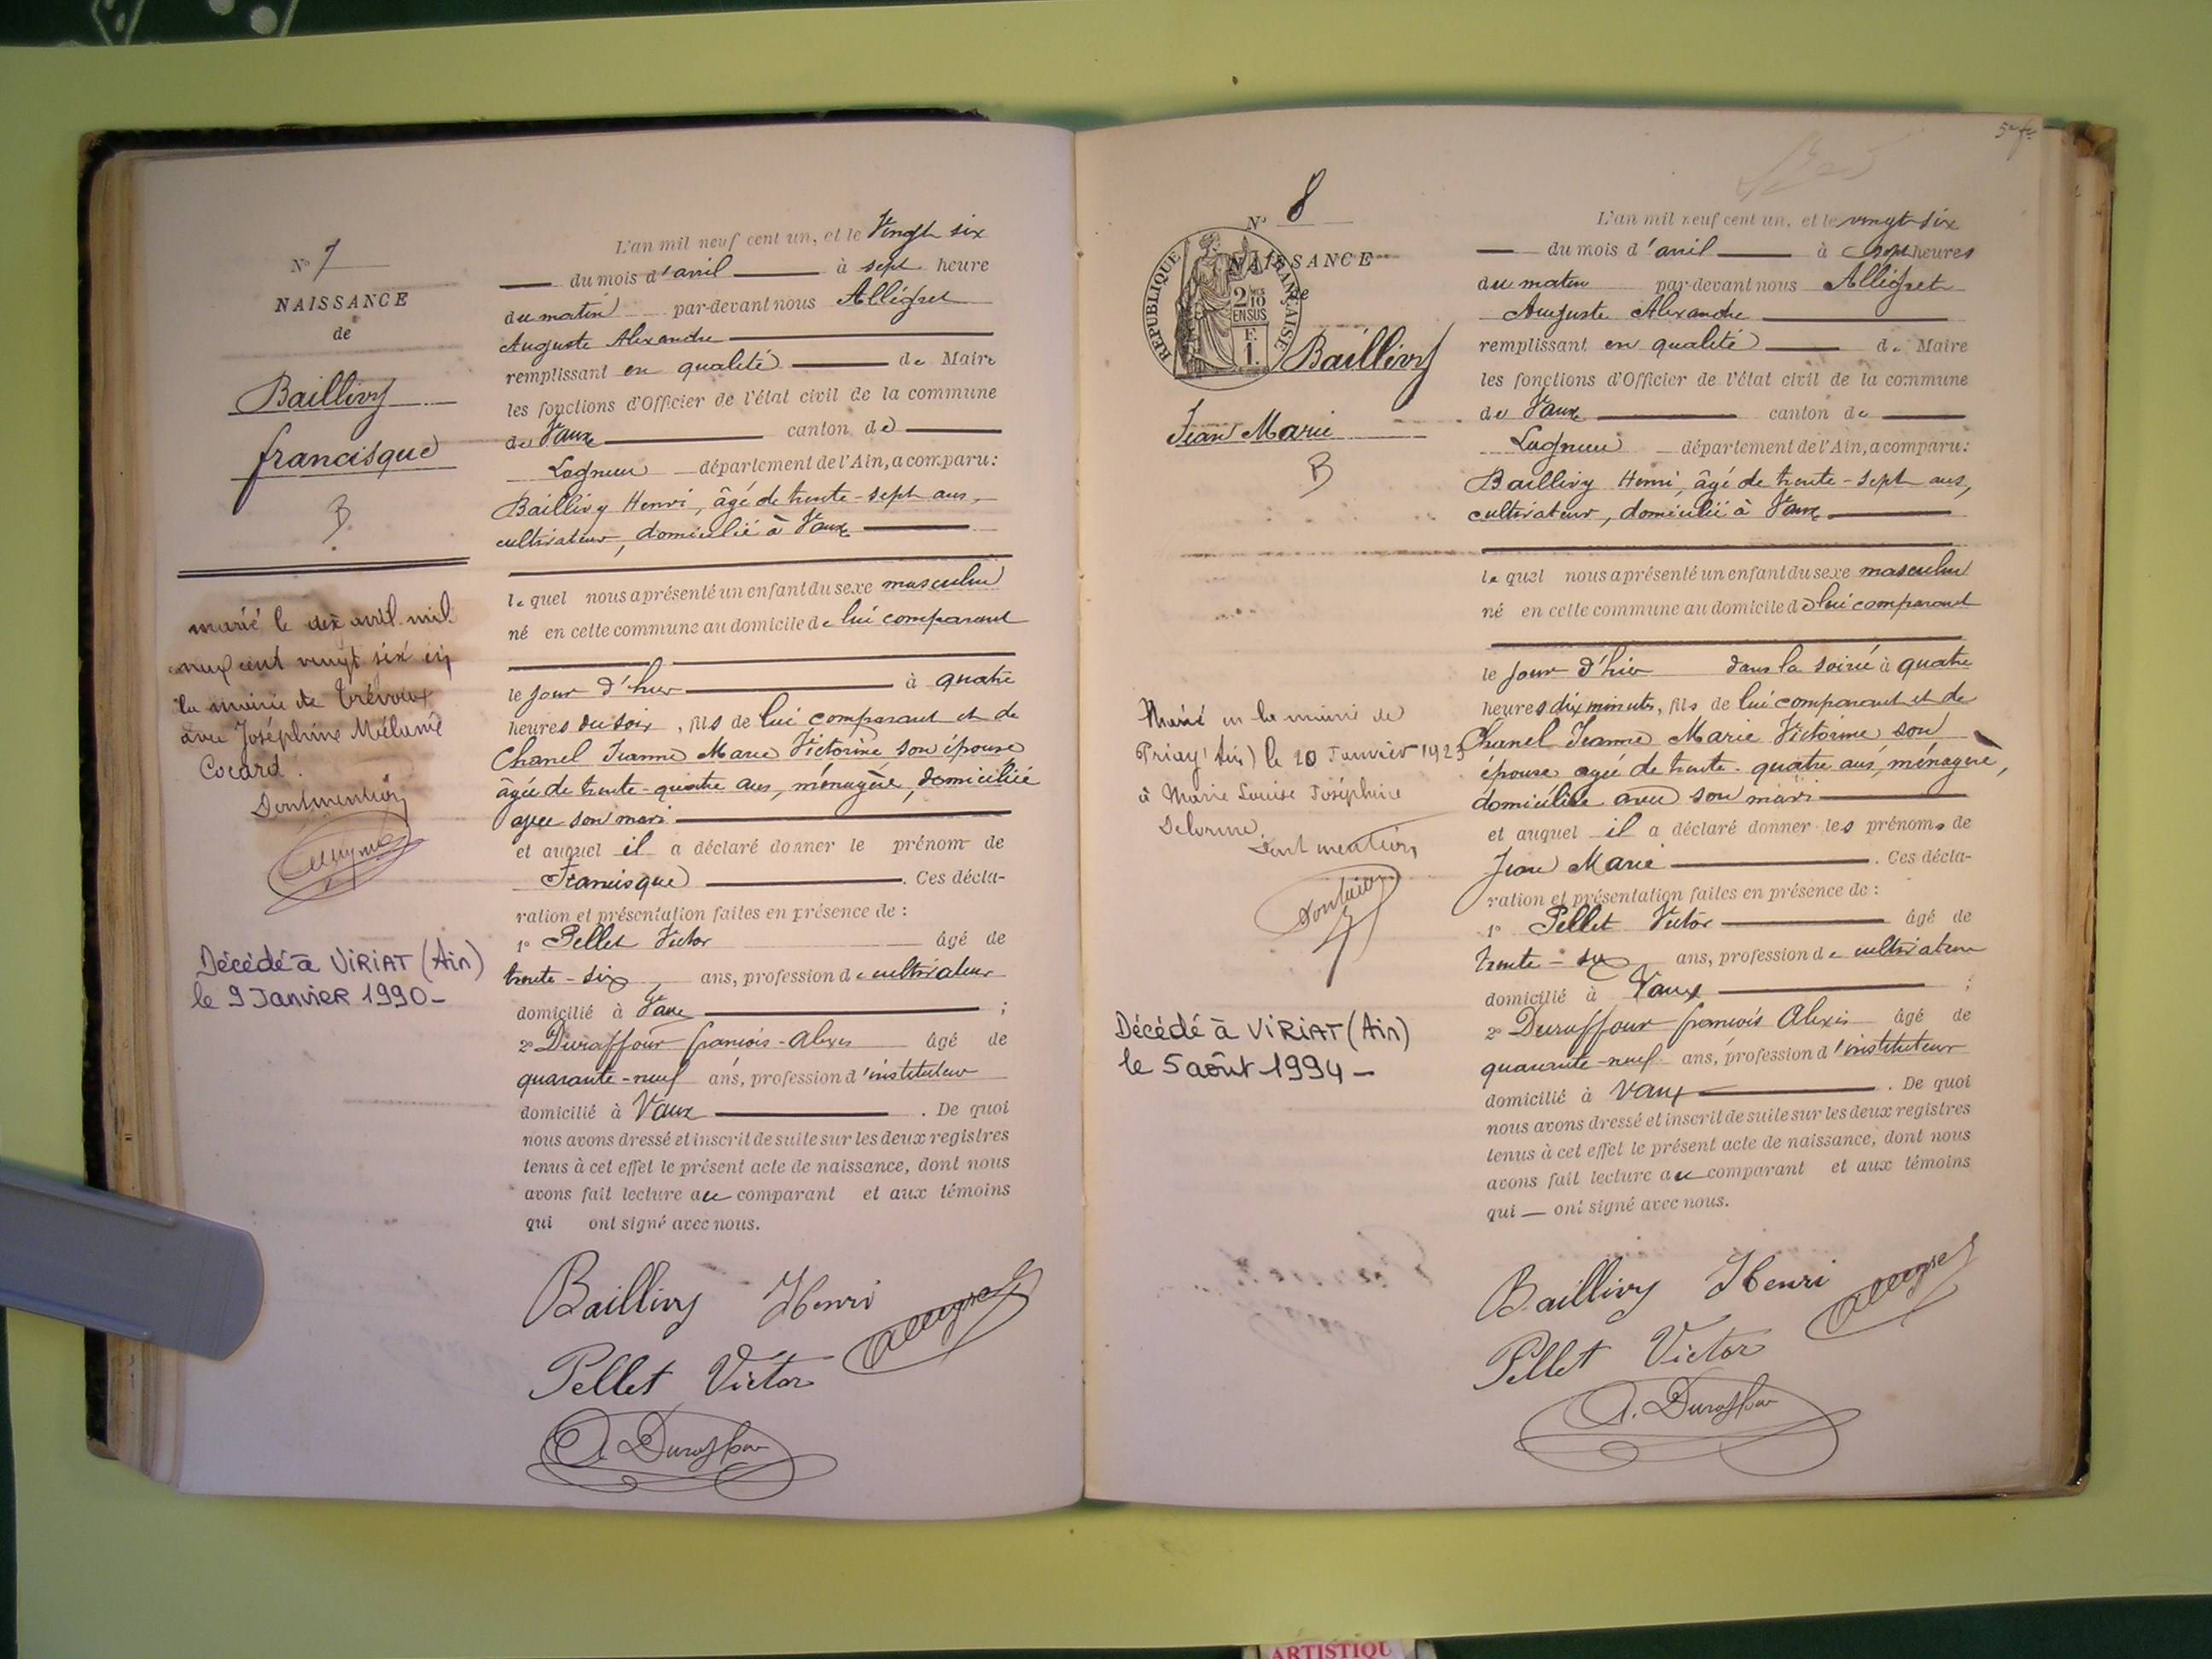 N° 7
NAISSANCE
de
Baillivy
francisque
B
marié le dix avril mil
neuf cent vingt six en
la mairie de Trévoux
avec Joséphine Mélanie
Cocard.
Dont mention
Décédé à VIRIAT (Ain)
le 9 Janvier 1990 -
L'an mil neuf cent un, et le Vingt six
du mois d'avril à sept heure
du matin par-devant nous Allégret
Auguste Alexandre
remplissant en qualité de Maire
les fonctions d'Officier de l'état civil de la commune
de Vaux canton de
Lagnieu département de l'Ain, a comparu:
Baillivy Henri, âgé de trente-sept ans,
cultivateur, domicilié à Vaux
lequel nous a présenté un enfant du sexe masculin
né en cette commune au domicile de lui comparant
le jour d'hier à quatre
heures du soir, fils de lui comparant et de
Chanel Jeanne Marie Victorine son épouse
âgée de trente-quatre ans, ménagère, domiciliée
avec son mari
et auquel il a déclaré donner le prénom de
Francisque. Ces décla-
ration et présentation faites en présence de :
1° Pellet Victor âgé de
trente-six ans, profession de cultivateur
domicilié à Vaux ;
2° Duraffour françois-Alexis âgé de
quarante-neuf ans, profession d'instituteur
domicilié à Vaux. De quoi
nous avons dressé et inscrit de suite sur les deux registres
tenus à cet effet le présent acte de naissance, dont nous
avons fait lecture au comparant et aux témoins
qui ont signé avec nous.
Baillivy Henri Allegret
Pellet Victor
A. Duraffour
5e fe
N° 8
NAISSANCE
de
REPUBLIQUE FRANÇAISE
2/10 EN SUS
F.
1.
Baillivy
Jean Marie
B
Marié en la mairie de
Priay (Ain) le 20 Janvier 1923
à Marie Louise Joséphine
Delorme.
Dont mention
Décédé à VIRIAT (Ain)
le 5 août 1994 -
L'an mil neuf cent un, et le vingt-six
du mois d'avril à sept heures
du matin par-devant nous Allégret
Auguste Alexandre
remplissant en qualité de Maire
les fonctions d'Officier de l'état civil de la commune
de Vaux canton de
Lagnieu département de l'Ain, a comparu:
Baillivy Henri, âgé de trente-sept ans,
cultivateur, domicilié à Vaux
lequel nous a présenté un enfant du sexe masculin
né en cette commune au domicile de lui comparant
le jour d'hier dans la soirée à quatre
heures dix minutes, fils de lui comparant et de
Chanel Jeanne Marie Victorine, son
épouse agée de trente-quatre ans, ménagère,
domiciliée avec son mari
et auquel il a déclaré donner les prénoms de
Jean Marie. Ces décla-
ration et présentation faites en présence de :
1° Pellet Victor âgé de
trente-six ans, profession de cultivateur
domicilié à Vaux ;
2° Duraffour françois Alexis âgé de
quarante-neuf ans, profession d'instituteur
domicilié à Vaux. De quoi
nous avons dressé et inscrit de suite sur les deux registres
tenus à cet effet le présent acte de naissance, dont nous
avons fait lecture au comparant et aux témoins
qui — ont signé avec nous.
Baillivy Henri Allegret
Pellet Victor
A. Duraffour
ARTISTIQU